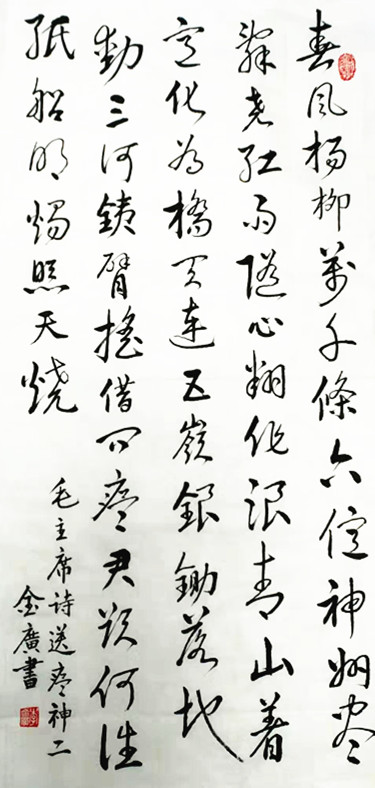 春風楊柳萬千條六億神州盡
舜堯紅雨隨心翻作浪青山着
意化為橋天連五嶺銀鋤落地
動三河銕臂搖借問瘟君欲何往
紙船明燭照天燒
毛主席诗送瘟神二
金廣書